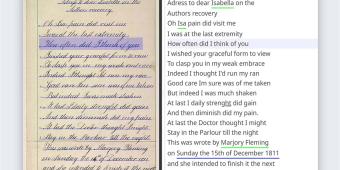 Adress to dear Isabella on the
Authors recovery
Oh Isa pain did visit me
I was at the last extremity
How often did I think of you
I wished your graceful form to view
To clasp you in my weak embrace
Indeed I thought I'd run my race
Good care I'm sure was of me taken
But indeed I was much shaken
At last I daily strenght did gain
And then diminish did my pain
At last the Doctor thought I might
Stay in the Parlour till the night
This was wrote by Marjory Fleming
on Sunday the 15th of December 1811
and she intended to finish it the next
Adress to dear Isabella on the
Authors recovery
Oh Isa pain did visit me
I was at the last extremity
How often did I think of you
I wished your graceful form to view
To clasp you in my weak embrace
Indeed I thought I'd my ran
Good care Im sure was of me taken
But indeed I was much shaken
At last I daily strenght did gain
And then diminish did my pain.
At last the Doctor thoughd I might
Stay in the Parlour till the night
This was wrote by Marjory Fleming
on Sunday the 15th of December 1811
and she intended to finish it the next